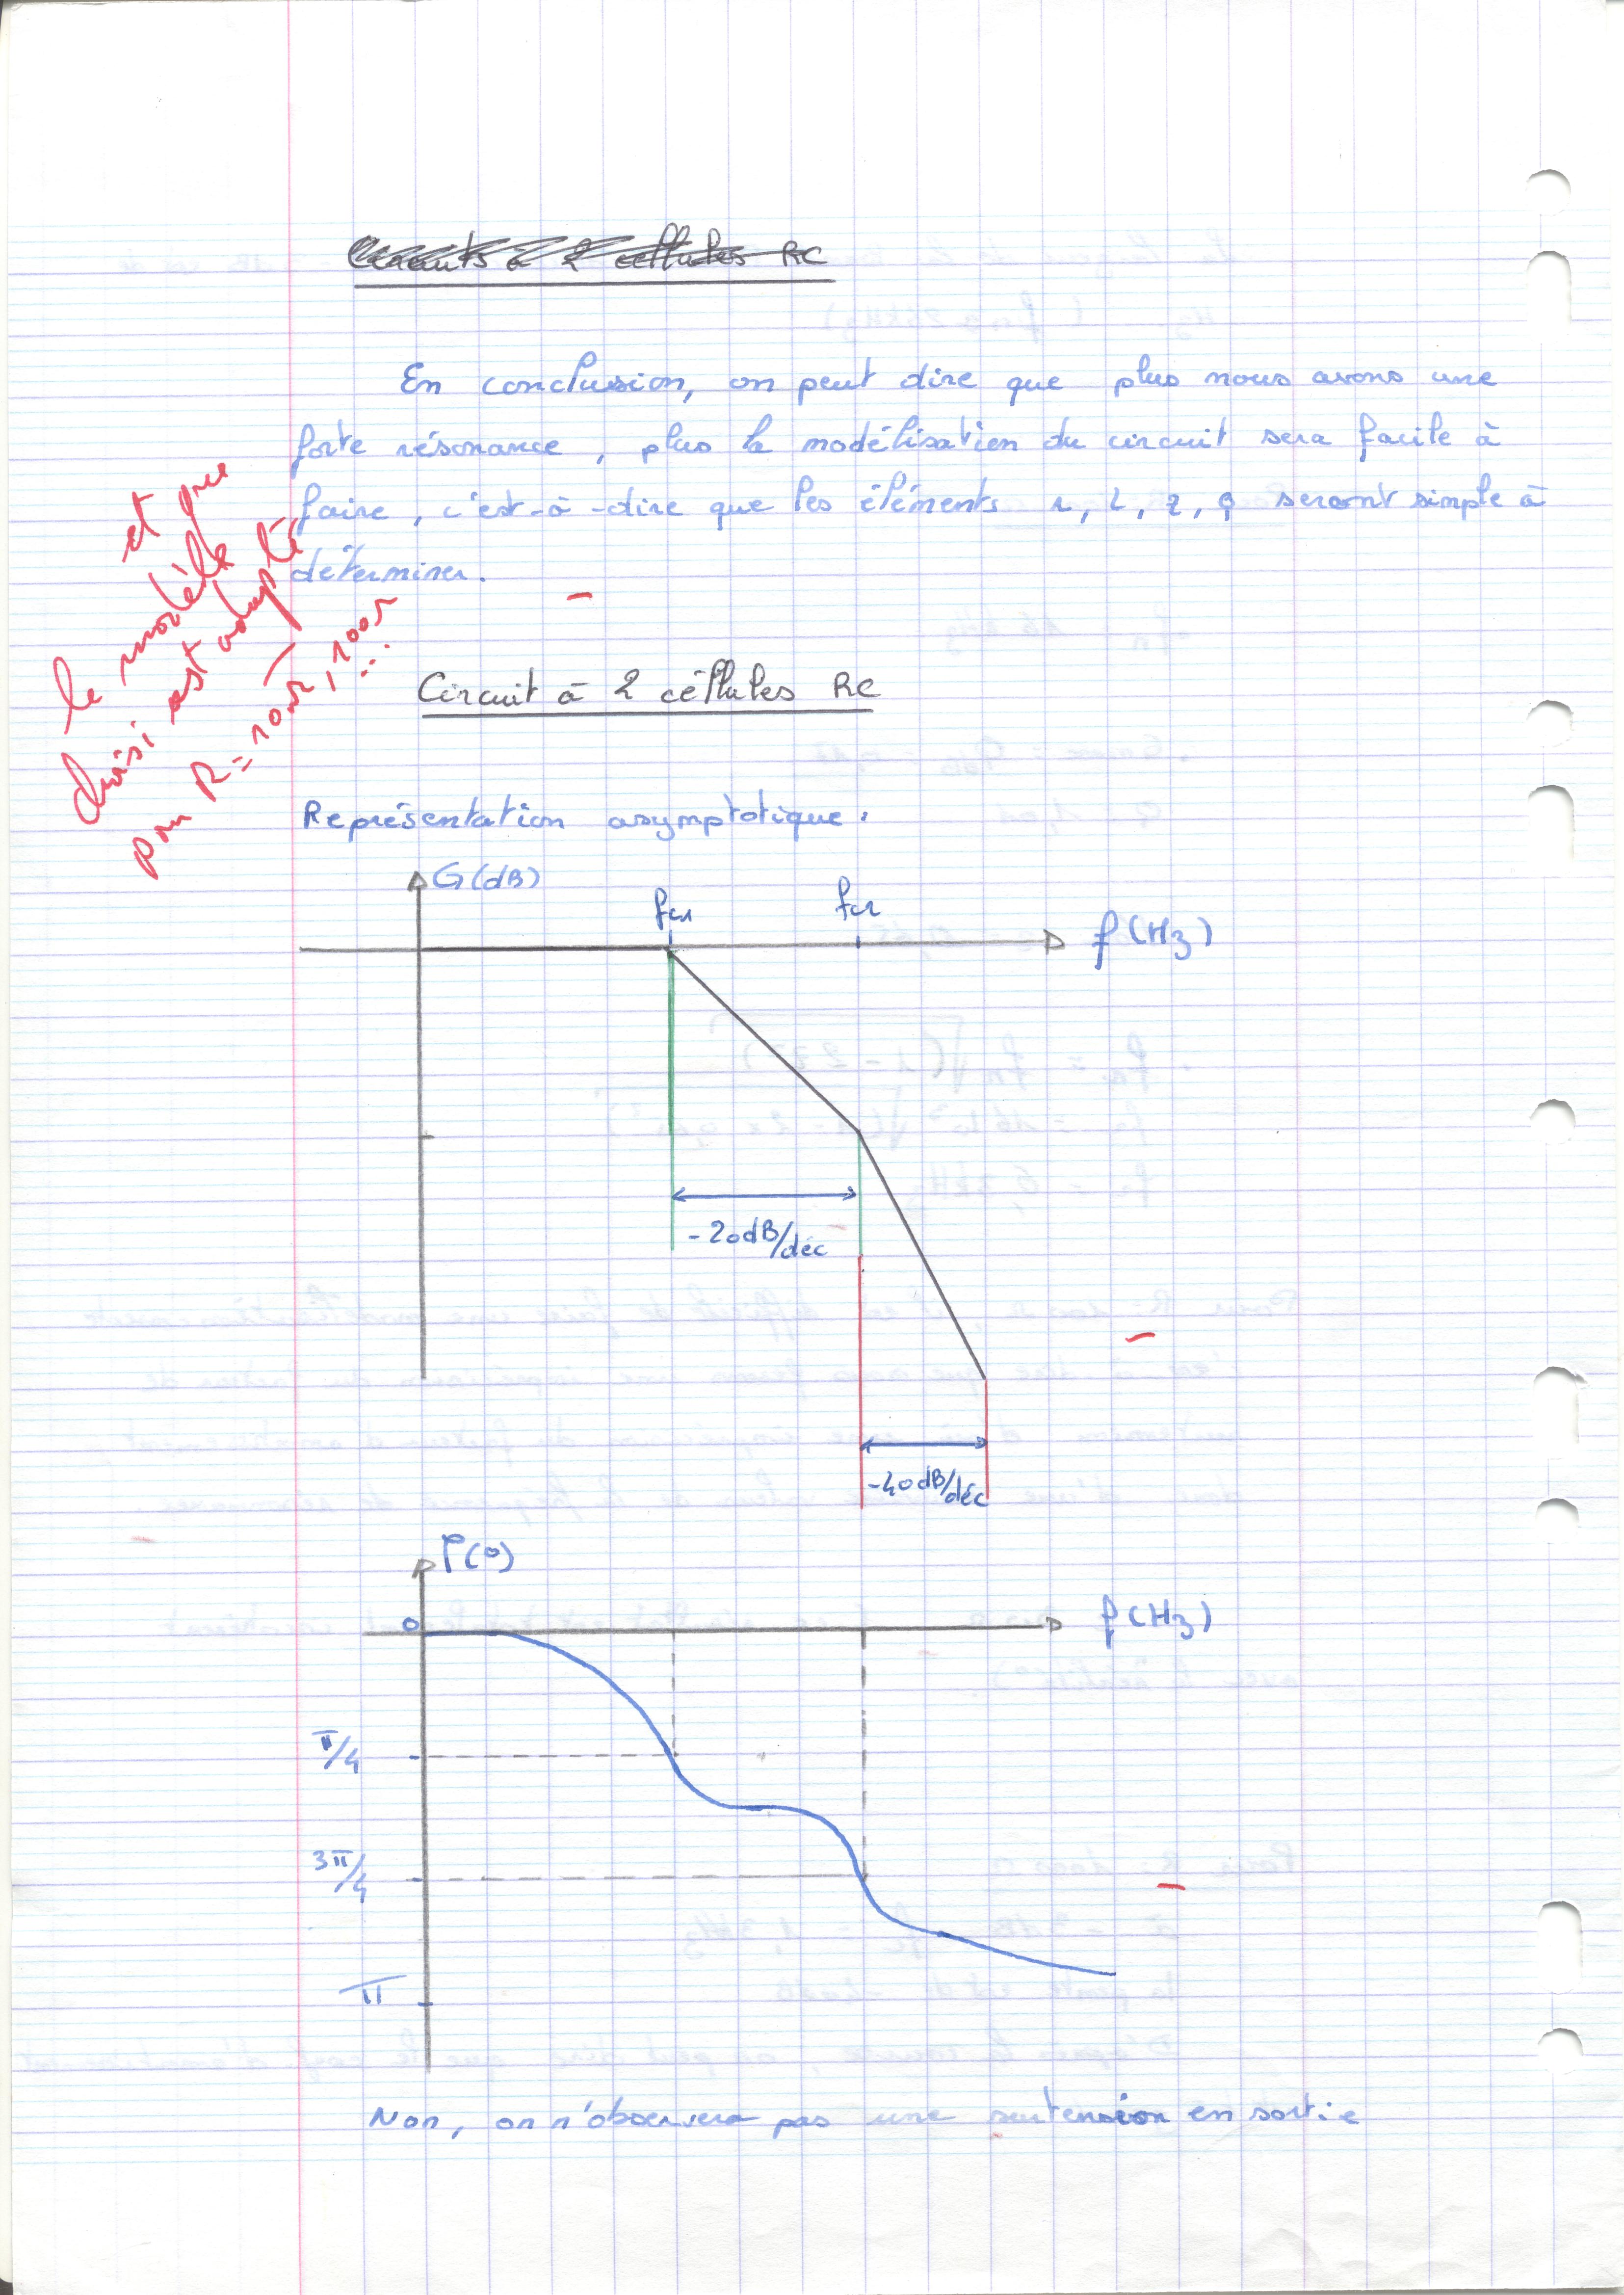 Circuits à 2 cellules RC
En conclusion, on peut dire que plus nous avons une
forte résonance, plus la modélisation du circuit sera facile à
faire, c'est-à-dire que les éléments r, L, z, Q seront simple à
déterminer.
et que
le modèle
choisi est adapté
pour R = 10Ω, 100Ω
...
Circuit à 2 céllules RC
Représentation asymptotique.
G(dB)
fc1
fc2
f(Hz)
-20dB/déc
-40dB/déc
φ(°)
0
f(Hz)
π/4
3π/4
π
Non, on n'observera pas une surtension en sortie